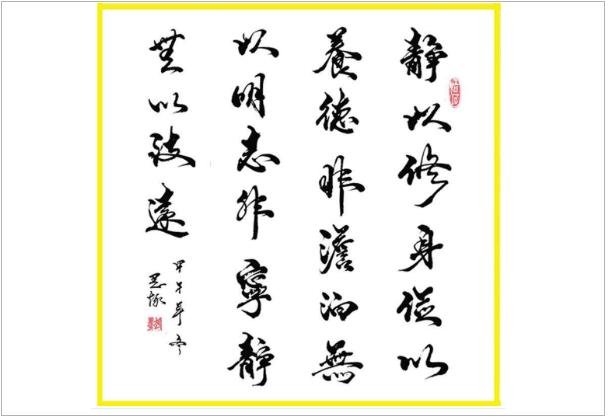 靜以修身儉以
養德非澹泊無
以明志非寧靜
無以致遠
甲午年冬